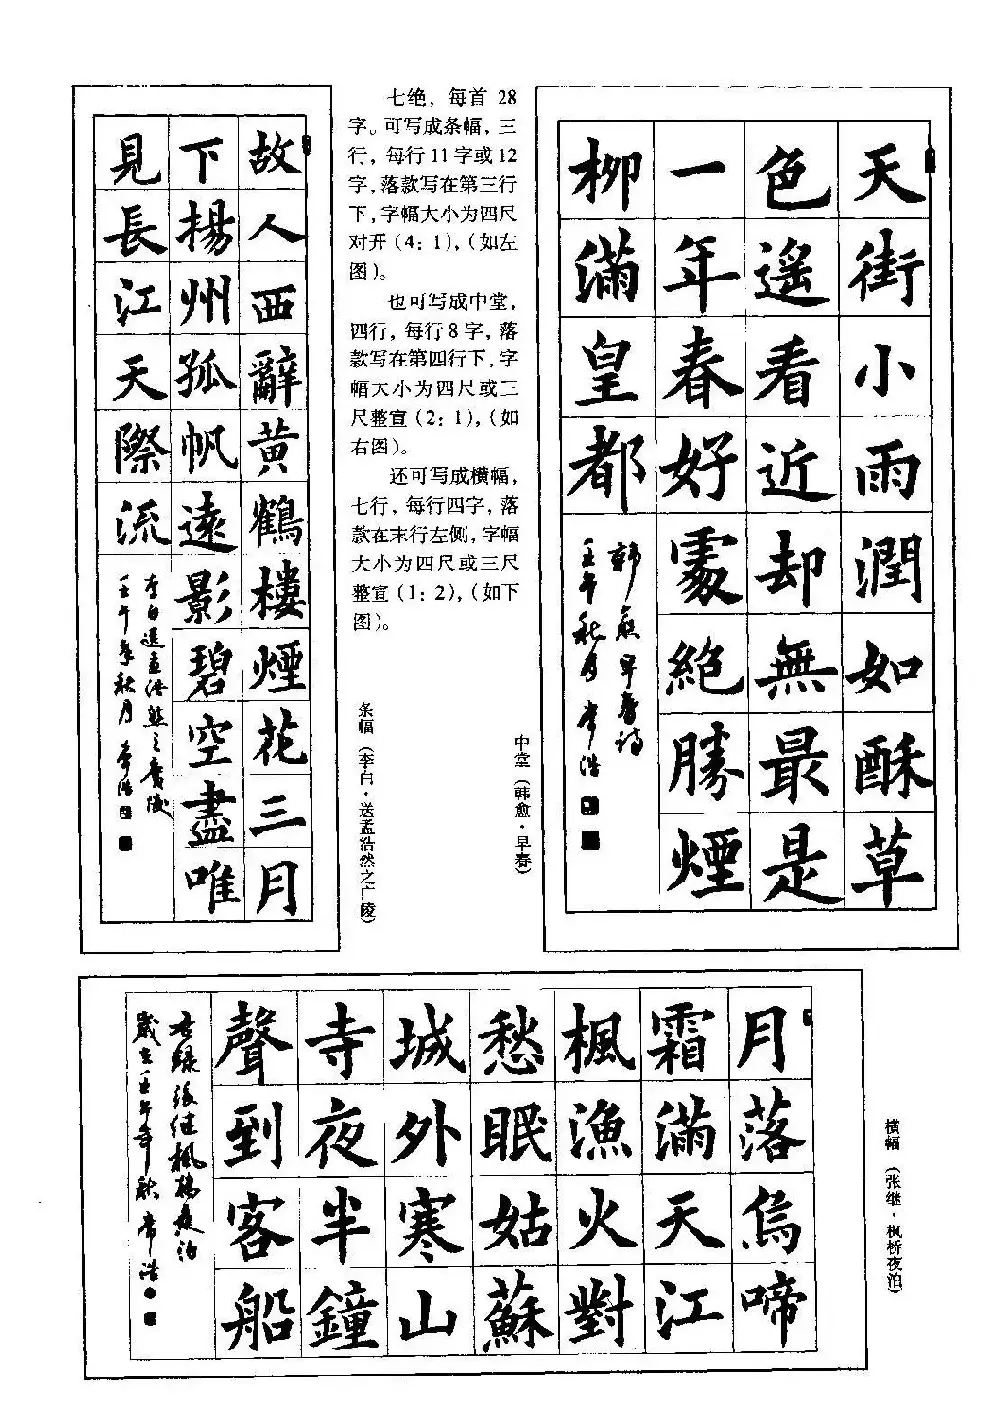 七绝，每首 28
字。可写成条幅，三
行，每行 11 字或 12
字，落款写在第三行
下，字幅大小为四尺
对开（4：1），（如左
图）。
也可写成中堂，
四行，每行 8 字，落
款写在第四行下，字
幅大小为四尺或三
尺整宣（2：1），（如
右图）。
还可写成横幅，
七行，每行四字，落
款在末行左侧，字幅
大小为四尺或三尺
整宣（1：2），（如下
图）。
故人西辭黄鶴樓煙花三月
下揚州孤帆遠影碧空盡唯
見長江天際流
李白送孟浩然之廣陵
壬午年秋月常浩
条幅（李白·送孟浩然之广陵）
天街小雨潤如酥草
色遥看近却無最是
一年春好處絕勝煙
柳滿皇都
韩愈早春诗
壬午秋月常浩
中堂（韩愈·早春）
月落烏啼
霜滿天江
楓漁火對
愁眠姑蘇
城外寒山
寺夜半鐘
聲到客船
右録張继枫橋夜泊
歲在壬午年秋常浩
横幅（张继·枫桥夜泊）